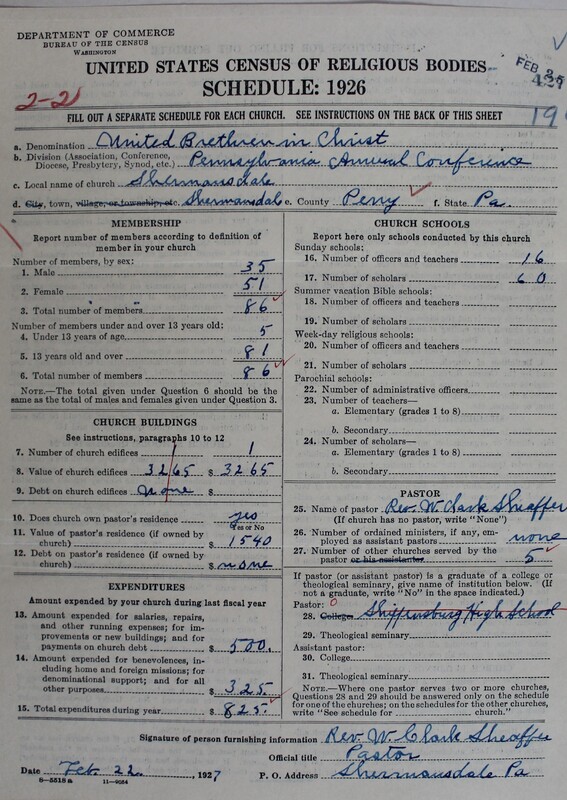 DEPARTMENT OF COMMERCE
BUREAU OF THE CENSUS
WASHINGTON
UNITED STATES CENSUS OF RELIGIOUS BODIES
SCHEDULE: 1926
FEB 25
2-21
FILL OUT A SEPARATE SCHEDULE FOR EACH CHURCH. SEE INSTRUCTIONS ON THE BACK OF THIS SHEET
a. Denomination United Brethren in Christ
b. Division (Association, Conference, Diocese, Presbytery, Synod, etc.) Pennsylvania Annual Conference
c. Local name of church Shermansdale
d. City, town, village, or township, etc. Shermansdale e. County Perry f. State Pa.
MEMBERSHIP
Report number of members according to definition of
member in your church
Number of members, by sex:
1. Male 35
2. Female 51
3. Total number of members 86
Number of members under and over 13 years old:
4. Under 13 years of age 5
5. 13 years old and over 81
6. Total number of members 86
NOTE.—The total given under Question 6 should be
same as the total of males and females given under Question 3.
CHURCH BUILDINGS
See instructions, paragraphs 10 to 12
7. Number of church edifices 1 1
8. Value of church edifices 3265 $ 3265
9. Debt on church edifices none $
10. Does church own pastor's residence yes
Yes or No
11. Value of pastor's residence (if owned by
church) $ 1540
12. Debt on pastor's residence (if owned by
church) $ none
EXPENDITURES
Amount expended by your church during last fiscal year
13. Amount expended for salaries, repairs,
and other running expenses; for im-
provements or new buildings; and for
payments on church debt $ 500.
14. Amount expended for benevolences, in-
cluding home and foreign missions; for
denominational support; and for all
other purposes $ 325.
15. Total expenditures during year $ 825.
CHURCH SCHOOLS
Report here only schools conducted by this church
Sunday schools:
16. Number of officers and teachers 16
17. Number of scholars 60
Summer vacation Bible schools:
18. Number of officers and teachers
19. Number of scholars
Week-day religious schools:
20. Number of officers and teachers
21. Number of scholars
Parochial schools:
22. Number of administrative officers
23. Number of teachers—
a. Elementary (grades 1 to 8)
b. Secondary
24. Number of scholars—
a. Elementary (grades 1 to 8)
b. Secondary
PASTOR
25. Name of pastor Rev. W. Clark Sheaffer
(If church has no pastor, write "None")
26. Number of ordained ministers, if any, em-
ployed as assistant pastors none
27. Number of other churches served by the
pastor or his assistants 5
If pastor (or assistant pastor) is a graduate of a college or
theological seminary, give name of institution below. (If
not a graduate, write "No" in the space indicated.)
Pastor: 0
28. College Shippensburg High School
29. Theological seminary
Assistant pastor:
30. College
31. Theological seminary
NOTE.—Where one pastor serves two or more churches,
Questions 28 and 29 should be answered only on the schedule
for one of the churches; on the schedules for the other churches,
write "See schedule for church."
Signature of person furnishing information Rev. W Clark Sheaffer
Official title Pastor
Date Feb. 22, 1927 P. O. Address Shermansdale Pa
8—5518a 11—9084